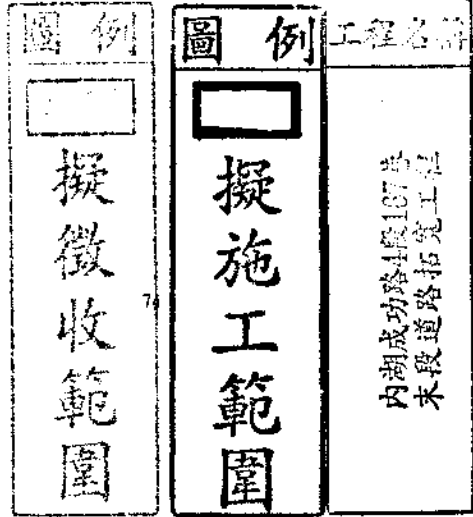 圖例
擬徵收範圍
74
圖例
擬施工範圍
工程名稱
内湖成功路4段187巷
末段道路拓寬工程